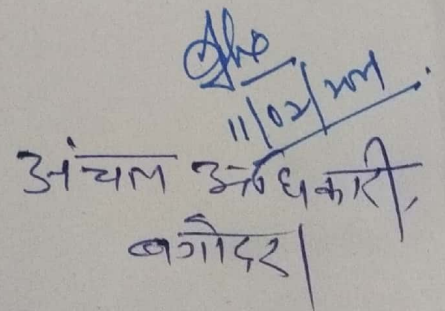 11/02/2021
अंचल अधिकारी,
बगोदर।